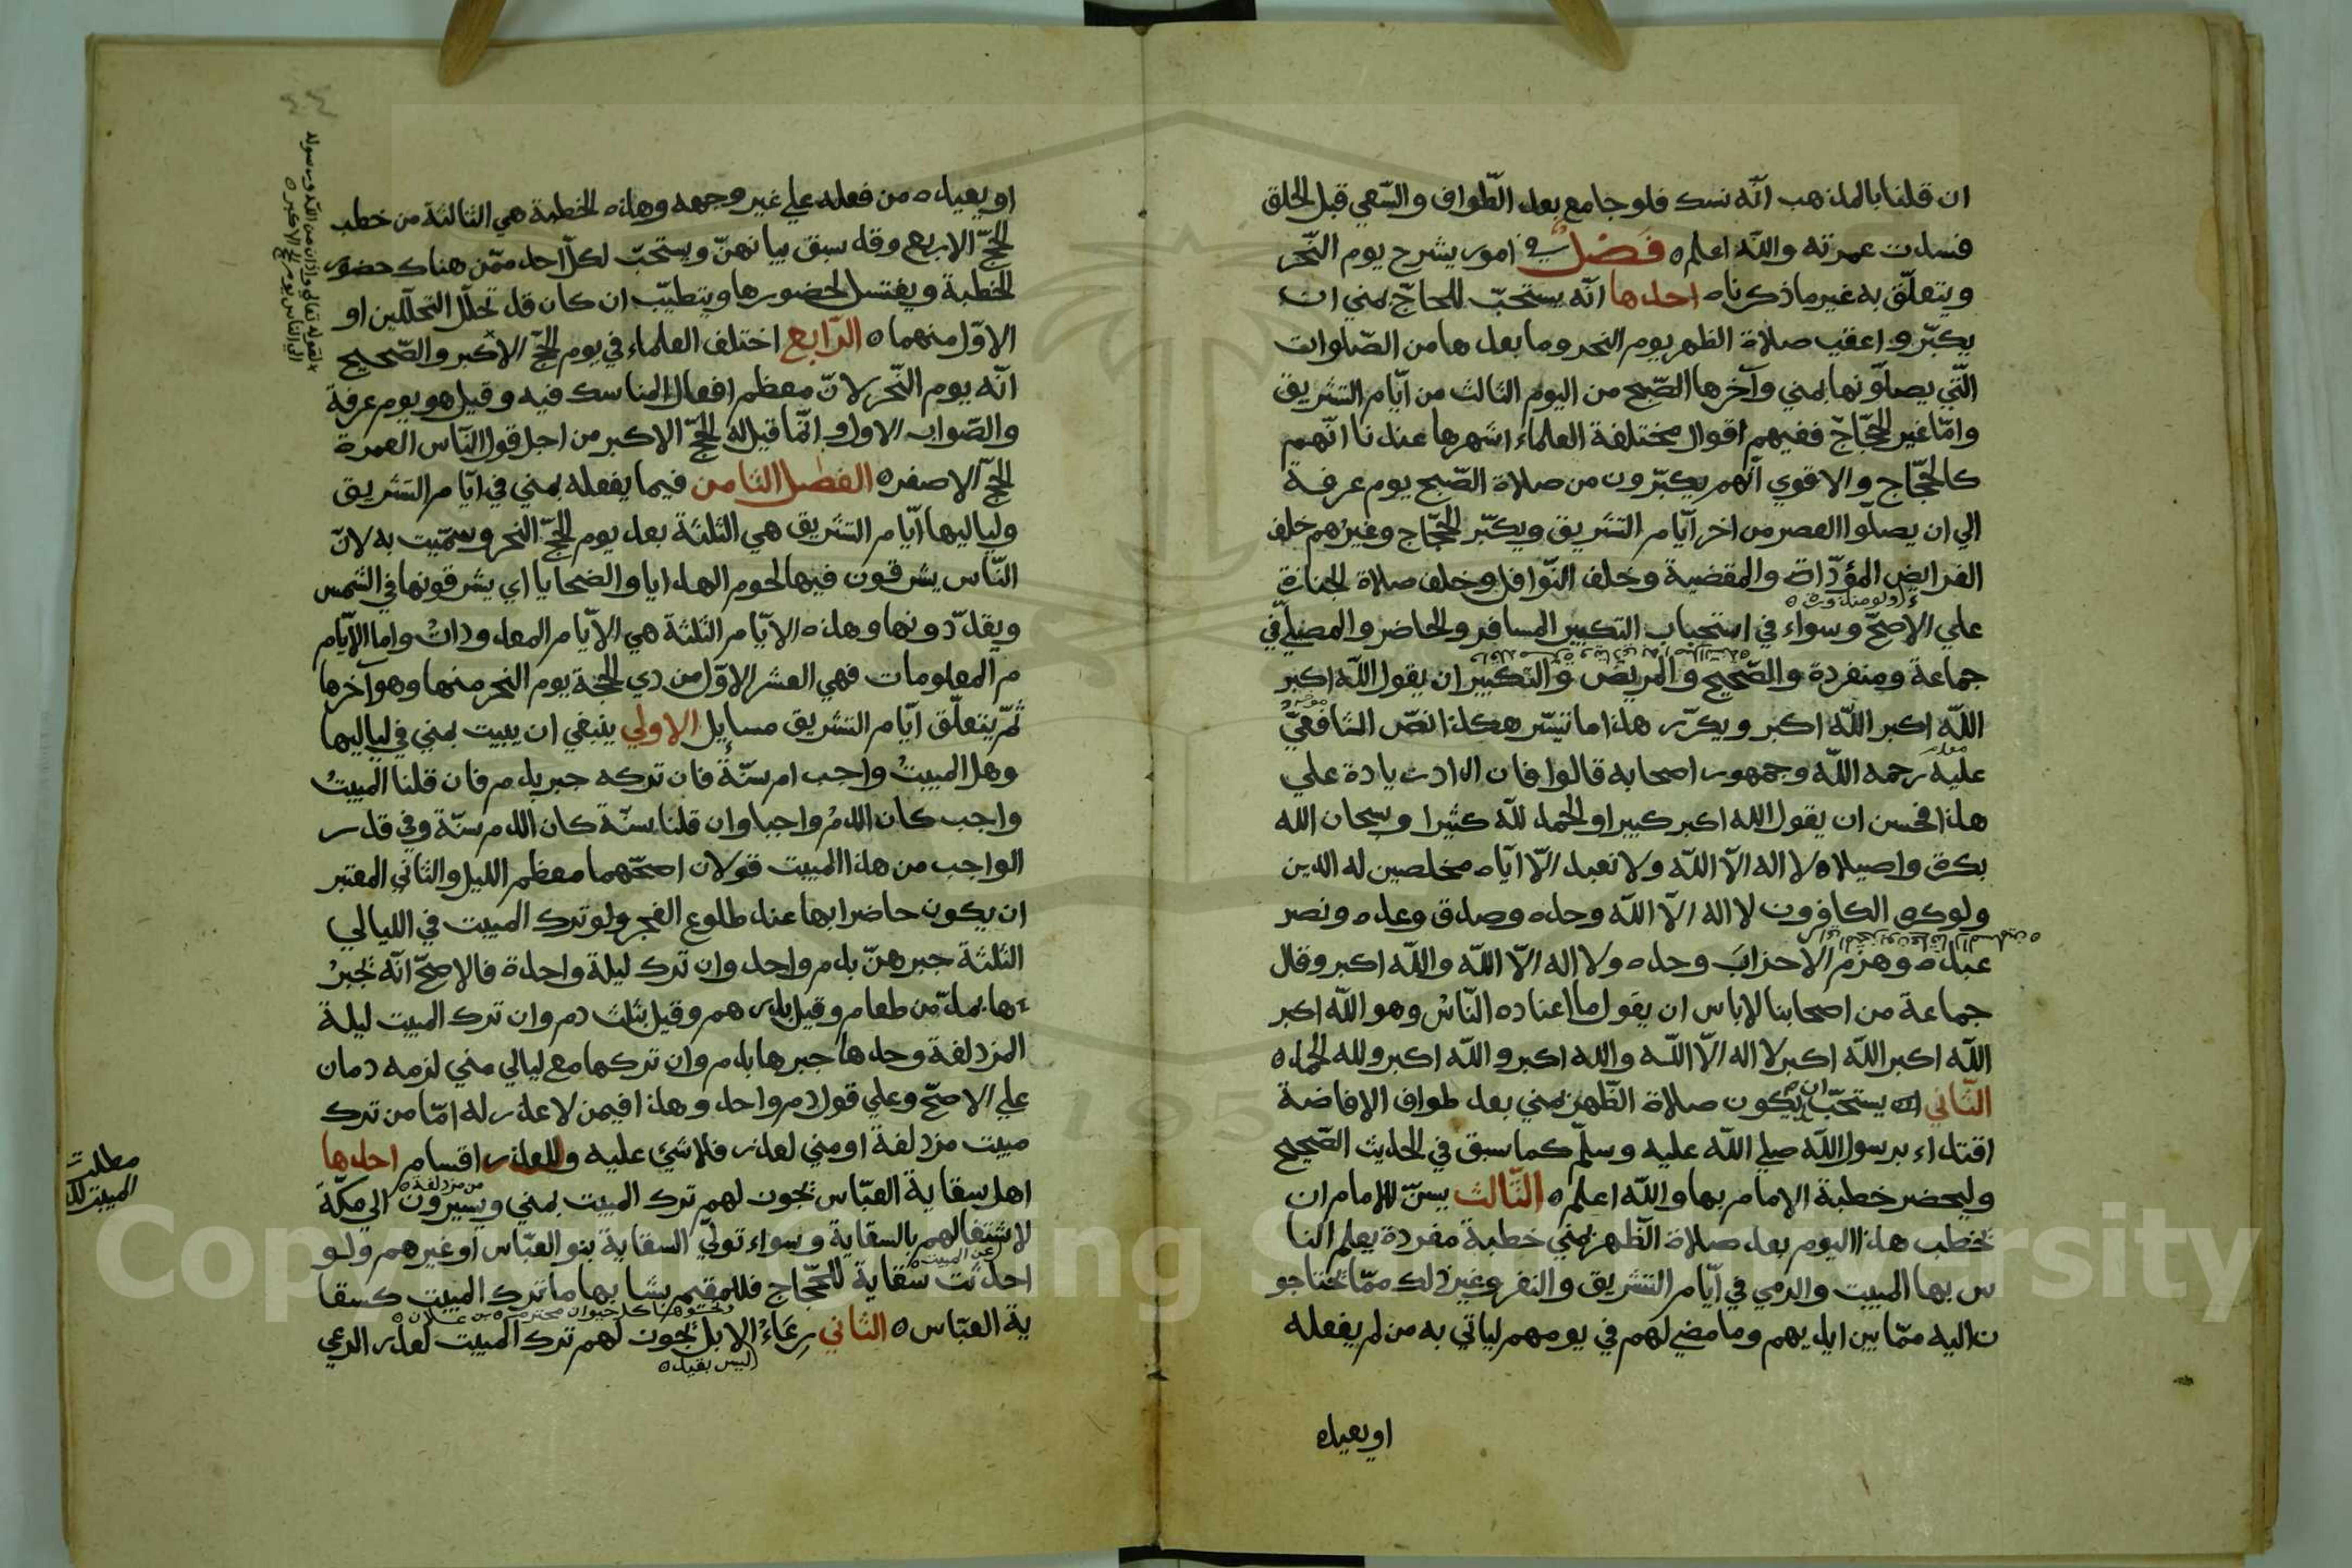 ان قلنا بالمذهب انّه نسك فلو جامع بعد الطّواف والسّعي قبل الحلق
فسدت عمرته واللّه اعلم ه فَصْلٌ في امور يشرح يوم النّحر
ويتعلّق به غير ما ذكرناه احدها انّه يستحبّ للحاجّ بمني ان
يكبّرو اعقب صلاة الظهر يوم النحر وما بعدها من الصّلوات
الّتي يصلّونها بمني وآخرها الصّبح من اليوم الثالث من ايّام التشريق
وامّا غير الحجّاج ففيهم اقوال مختلفة العلماء اشهرها عندنا انّهم
كالحجّاج والاقوي انّهم يكبّرون من صلاة الصّبح يوم عرفة
الي ان يصلّوا العصر من اخر ايّام التشريق ويكبّر الحجّاج وغيرهم خلف
الفرايض المؤدّاة والمقضية وخلف النّوافل وخلف صلاة الجنازة
(ولو منذورة ه
علي الاصحّ وسواء في استحباب التكبير المسافر والحاضر والمصلّي في
جماعة ومنفردة والصّحيح والمريض والتكبير ان يقول اللّه اكبر
اللّه اكبر اللّه اكبر ويكرّر هذا ما تيسّر هكذا نصّ الشافعيّ
عليه رحمه اللّه وجمهور اصحابه قالوا فان زاد زيادة علي
هذا فحسن ان يقول الله اكبر كبيرا والحمد للّه كثيرا وسبحان الله
بكرة واصيلا ه لا اله الاّ اللّه ولا نعبد الاّ ايّاه مخلصين له الدين
ولو كره الكافرون لا اله الاّ اللّه وحده وصدق وعده ونصر
عبده وهزم الاحزابَ وحده ولا اله الاّ اللّه واللّه اكبر وقال
جماعة من اصحابنا لا باس ان يقول ما اعتاده النّاسُ وهو اللّه اكبر
اللّه اكبر اللّه اكبر لا اله الاّ اللّه والله اكبر واللّه اكبر ولله الحمد ه
الثّاني يستحبّ ان يكون صلاة الظّهر بمني بعد طواف الافاضة
اقتداء برسول اللّه صلي اللّه عليه وسلّم كما سبق في الحديث الصّحيح
وليحضر خطبة الامام بها واللّه اعلم ه الثّالث يسنّ للامام ان
يخطب هذا اليوم بعد صلاة الظّهر بمني خطبة مفردة يعلم النا
س بها المبيت والرمي في ايّام التشريق والنفر وغير ذلك ممّا يحتاجو
ن اليه ممّا بين ايديهم وما مضي لهم في يومهم لياتي به من لم يفعله
او يعيده
او يعيده من فعله علي غير وجهه وهذه الخطبة هي الثالثة من خطب
الحجّ الاربع وقد سبق بيانهنّ ويستحبّ لكلّ احد ممّن هناك حضور
الخطبة ويغتسل لحضورها ويتطيّب ان كان قد تحلّل التحلّلين او
الاوّل منهما ه الرّابع اختلف العلماء في يوم الحجّ الاكبر والصّحيح
انّه يوم النّحر لانّ معظم افعال المناسك فيه وقيل هو يوم عرفة
والصّواب الاول وانّما قيل له الحجّ الاكبر من اجل قول النّاس العمرة
الحجّ الاصغر ه الفصل الثامن فيما يفعله بمني في ايّام التشريق
ولياليها ايّام التشريق هي الثلثة بعد يوم الحجّ النحر وسمّيت به لانّ
النّاس يشرقون فيها لحوم الهدايا والضحايا اي يشرقونها في الشمس
ويقدّدونها وهذه الايّام الثلثة هي الايّام المعدودات واما الايّام
م المعلومات فهي العشر الاوّل من ذي الحجّة يوم النحر منها وهو آخرها
ثمّ يتعلّق ايّام التشريق مسايل الاولي ينبغي ان يبيت بمني في لياليها
وهل المبيتُ واجب ام سنّةٌ فان تركه جبر بدم فان قلنا المبيتُ
واجب كان الدمُ واجبا وان قلنا سنّة كان الدم سنّة وفي قدر
الواجب من هذا المبيت قولان اصحّهما معظم الليل والثاني المعتبر
ان يكون حاضرا بها عند طلوع الفجر ولو ترك المبيت في الليالي
الثلثة جبرهنّ بدم واحد وان ترك ليلة واحدة فالاصحّ انّه يجبرُ
ها بمدّ من طعام وقيل بدرهم وقيل بثلث دم وان ترك المبيت ليلة
المزدلفة وحدها جبرها بدم وان تركها مع ليالي مني لزمه دمان
علي الاصحّ وعلي قول دم واحد وهذا فيمن لا عذر له امّا من ترك
مبيت مزدلفة او مني لعذر فلا شئ عليه وللعذر اقسام احدها
اهل سقاية العبّاس يجوز لهم ترك المبيت بمني ويسيرون الي مكّة
من مزدلفة ه
لاشتغالهم بالسقاية وسواء تولّي السقاية بنو العبّاس او غيرهم ولو
احدثت سقاية للحجّاج فللمقيم بشانها ما ترك المبيت كسقا
(عن المبيت ه
ية العبّاس ه الثاني رعَاءُ الابل يجوز لهم ترك المبيت لعذر الرعي
(ليس بقيد ه
لقوله تعالي واذان من اللّه ورسوله
الي الناس يوم الحج الاكبر ه
مطلب
المبيت
Copyright © King Saud University